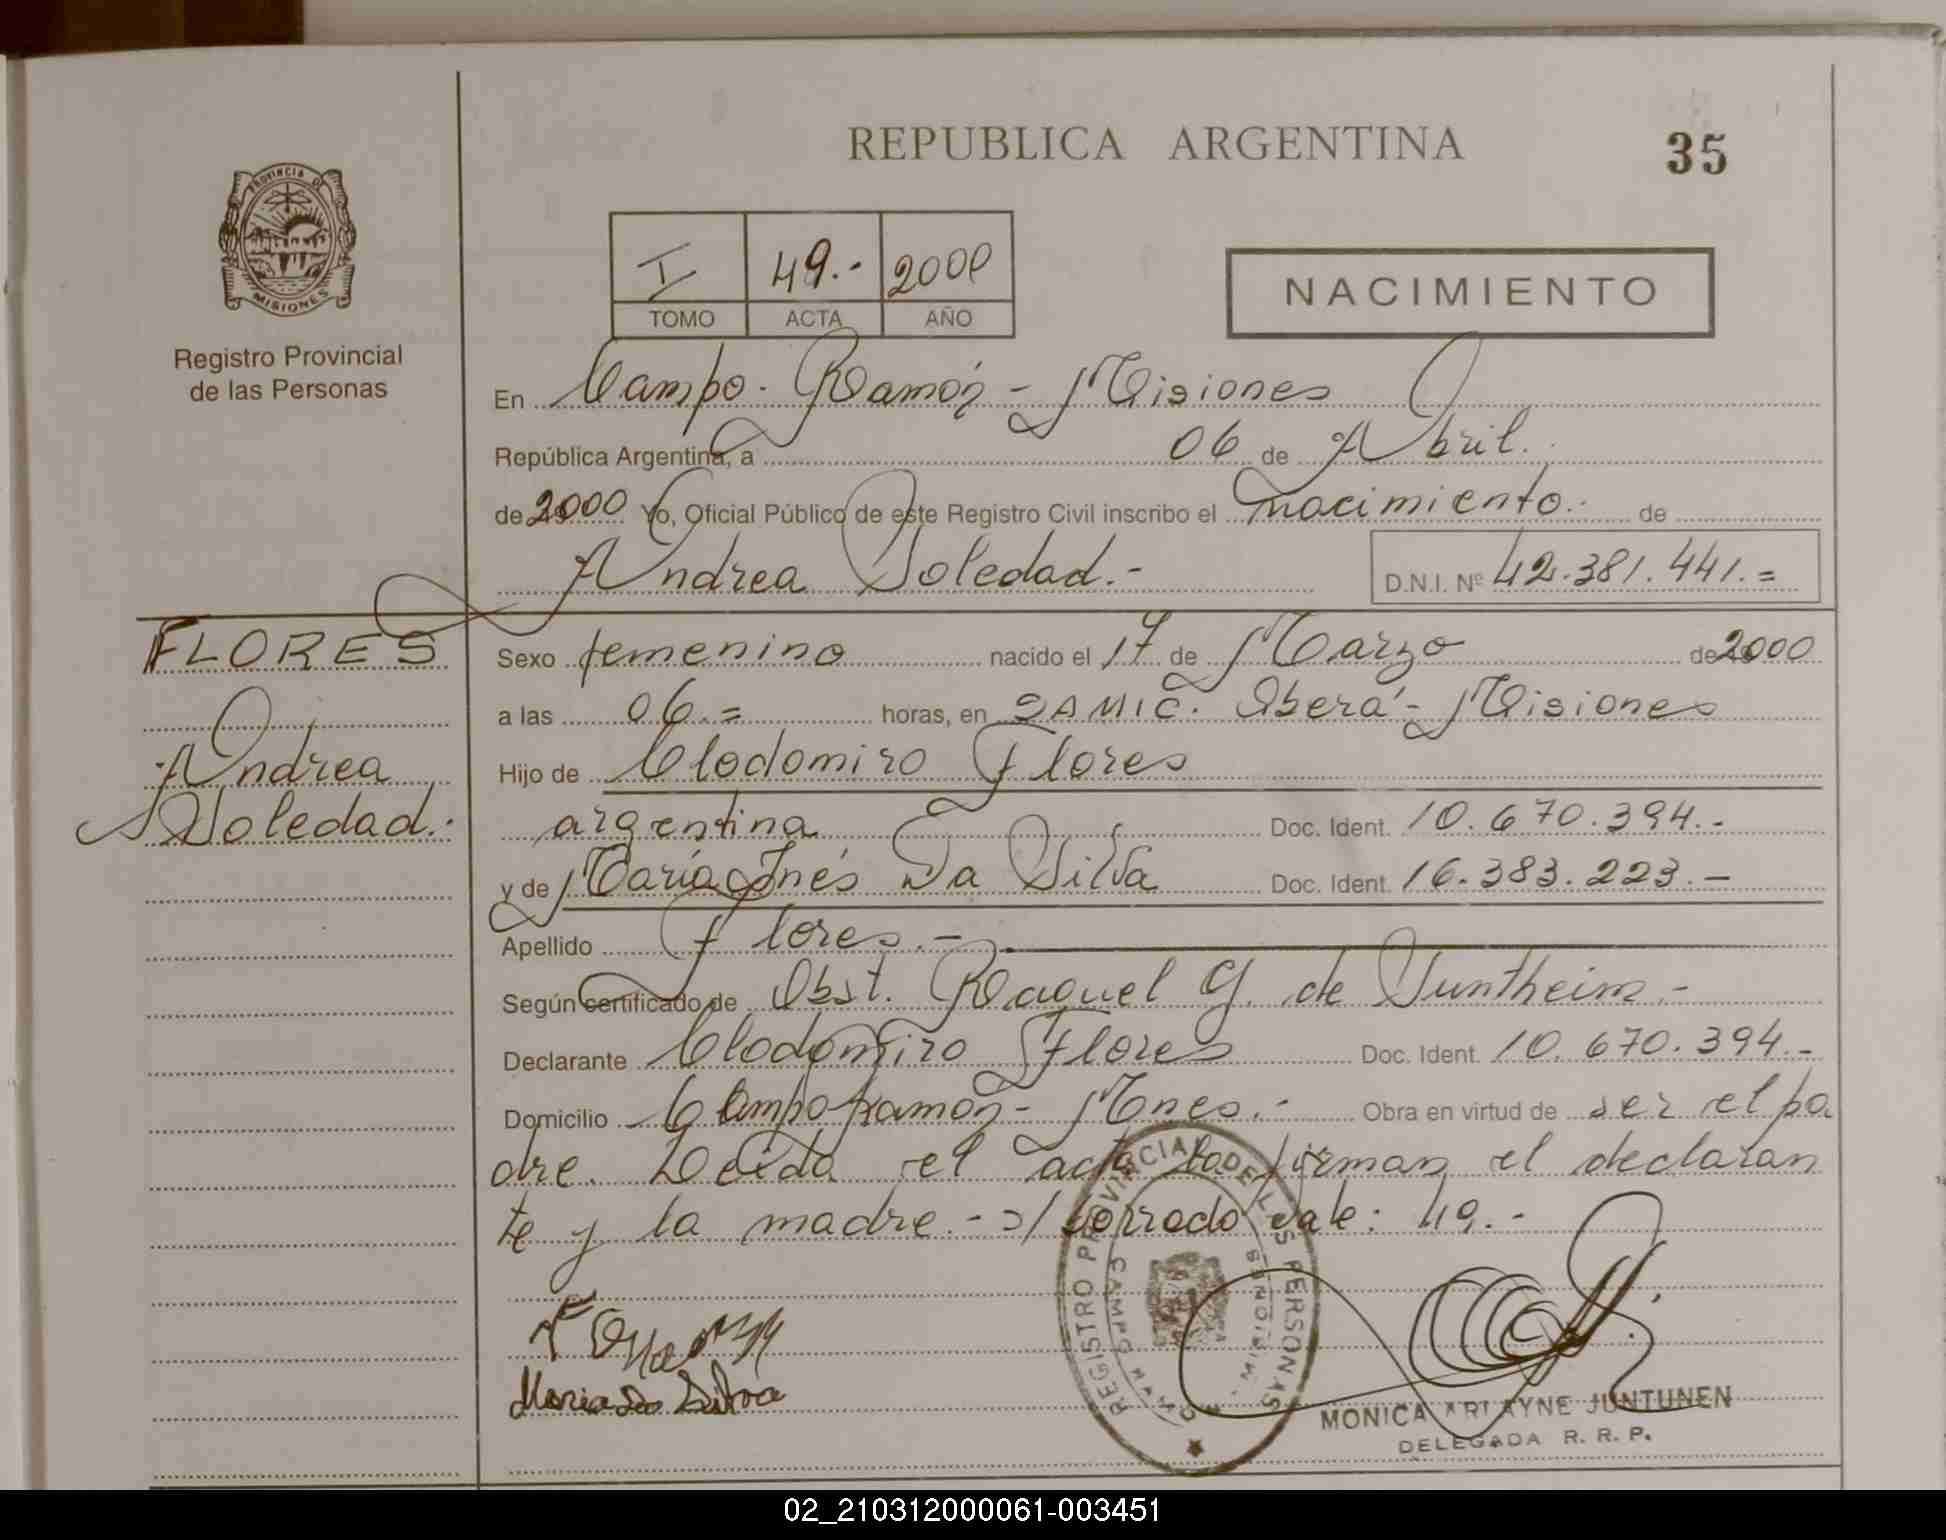 REPUBLICA ARGENTINA
35
PROVINCIA DE
MISIONES
Registro Provincial
de las Personas
I 49.- 2000
TOMO ACTA AÑO
NACIMIENTO
En Campo Ramón - Misiones
República Argentina, a 06 de Abril.
de 2000 Yo, Oficial Público de este Registro Civil inscribo el nacimiento.- de
Andrea Soledad.-
D.N.I. Nº 42.381.441.=
FLORES
Andrea
Soledad.-
Sexo femenino nacido el 17 de Marzo de 2000
a las 06.= horas, en SAMIC. Oberá - Misiones
Hijo de Clodomiro Flores
argentina Doc. Ident. 10.670.394.-
y de María Inés Da Silva Doc. Ident. 16.383.223.-
Apellido Flores.-
Según certificado de Obst. Raquel G. de Suntheim.-
Declarante Clodomiro Flores Doc. Ident. 10.670.394.-
Domicilio Campo Ramón - Mnes.- Obra en virtud de ser el pa
dre. Leída el acta la firman el declaran
te y la madre.- s/ borrado vale: 49.-
REGISTRO PROVINCIAL DE LAS PERSONAS
CAMPO RAMON
MISIONES
Maria Da Silva
MONICA ARLAYNE JUNTUNEN
DELEGADA R. R. P.
02_210312000061-003451